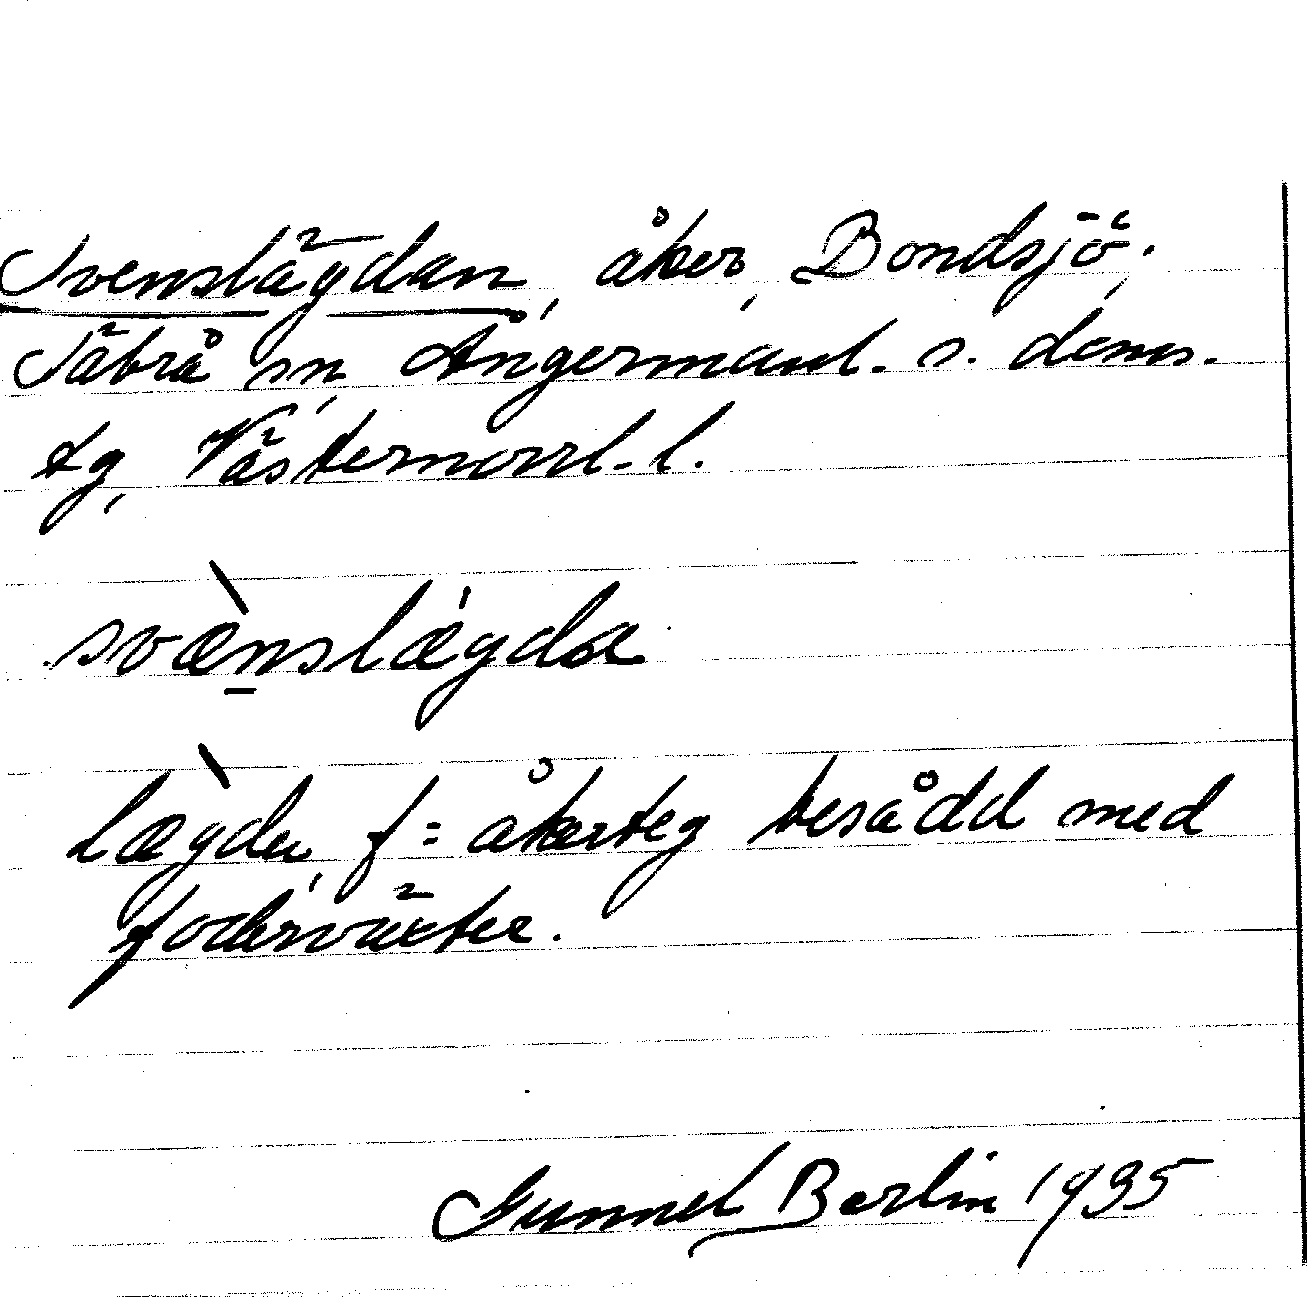 Svenslägdan, åker, Bondsjö,
Säbrå sn, Ångermanl. s. doms.
tg, Västernorrl. l.
svænslægda
lægda, f = åkerteg besådd med
foderväxter.
Gunnel Berlin 1935